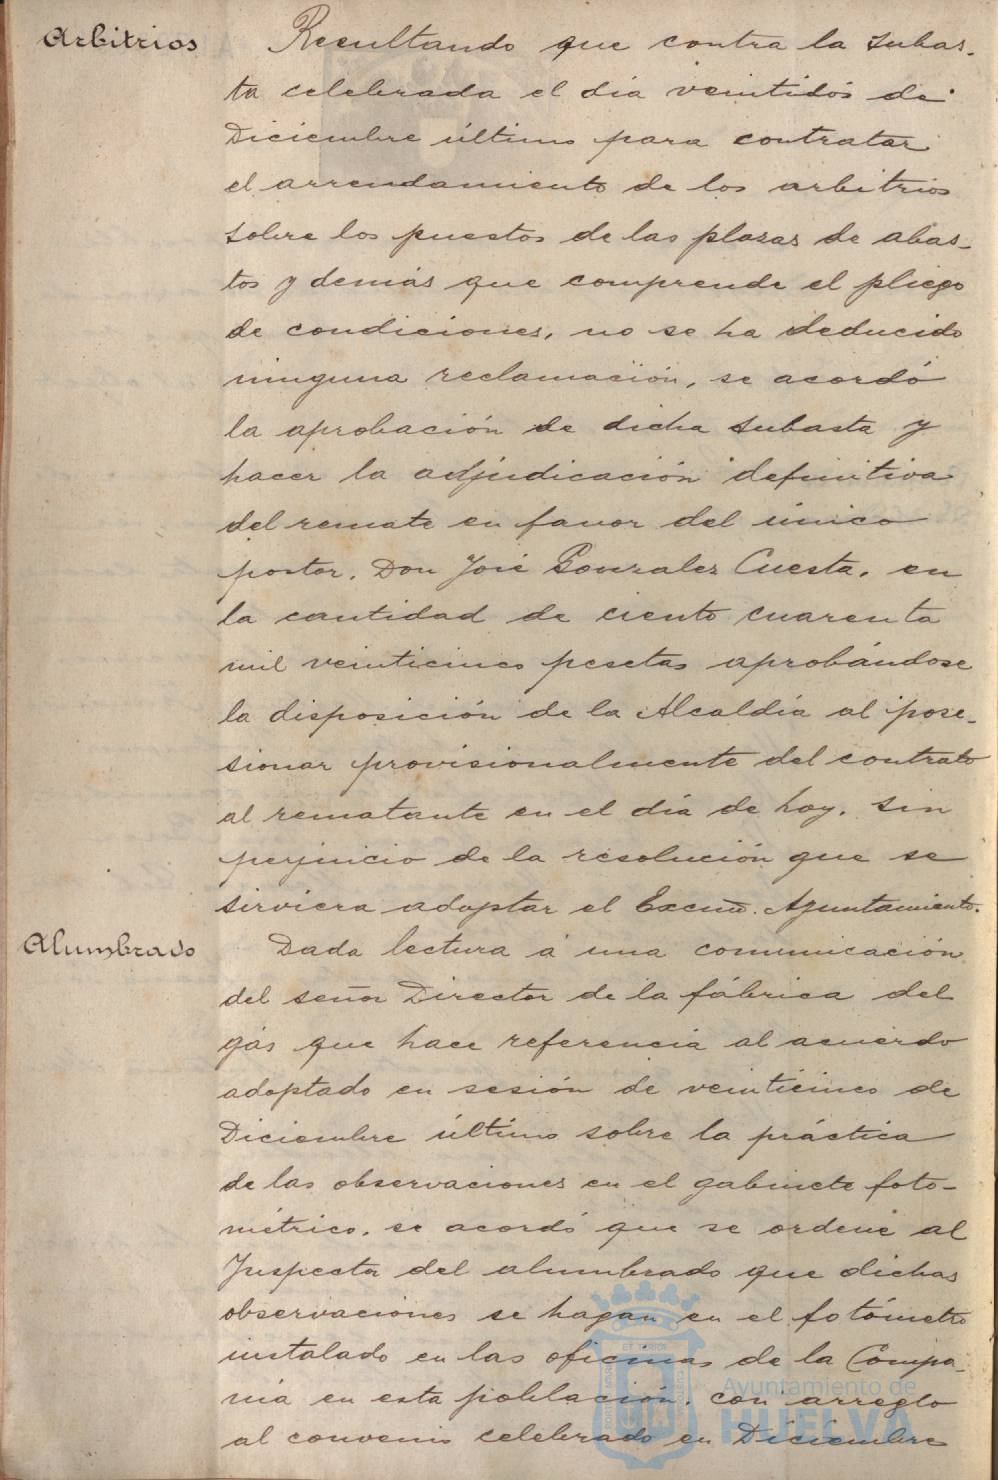 Arbitrios
Resultando que contra la subas-
ta celebrada el día veintidós de
Diciembre último para contratar
el arrendamiento de los arbitrios
sobre los puestos de las plazas de abas-
tos y demás que comprende el pliego
de condiciones, no se ha deducido
ninguna reclamación, se acordó
la aprobación de dicha subasta y
hacer la adjudicación definitiva
del remate en favor del único
postor, Don José Gonzalez Cuesta, en
la cantidad de ciento cuarenta
mil veinticinco pesetas aprobándose
la disposición de la Alcaldía al pose-
sionar provisionalmente del contrato
al rematante en el día de hoy, sin
perjuicio de la resolución que se
sirviera adoptar el Excmo. Ayuntamiento.
Alumbrado
Dada lectura á una comunicación
del señor Director de la fábrica del
gas que hace referencia al acuerdo
adoptado en sesión de veinticinco de
Diciembre último sobre la práctica
de las observaciones en el gabinete foto-
métrico, se acordó que se ordene al
Inspector del alumbrado que dichas
observaciones se hagan en el fotómetro
instalado en las oficinas de la Compa-
ñía en esta población, con arreglo
al convenio celebrado en Diciembre
Ayuntamiento de
HUELVA